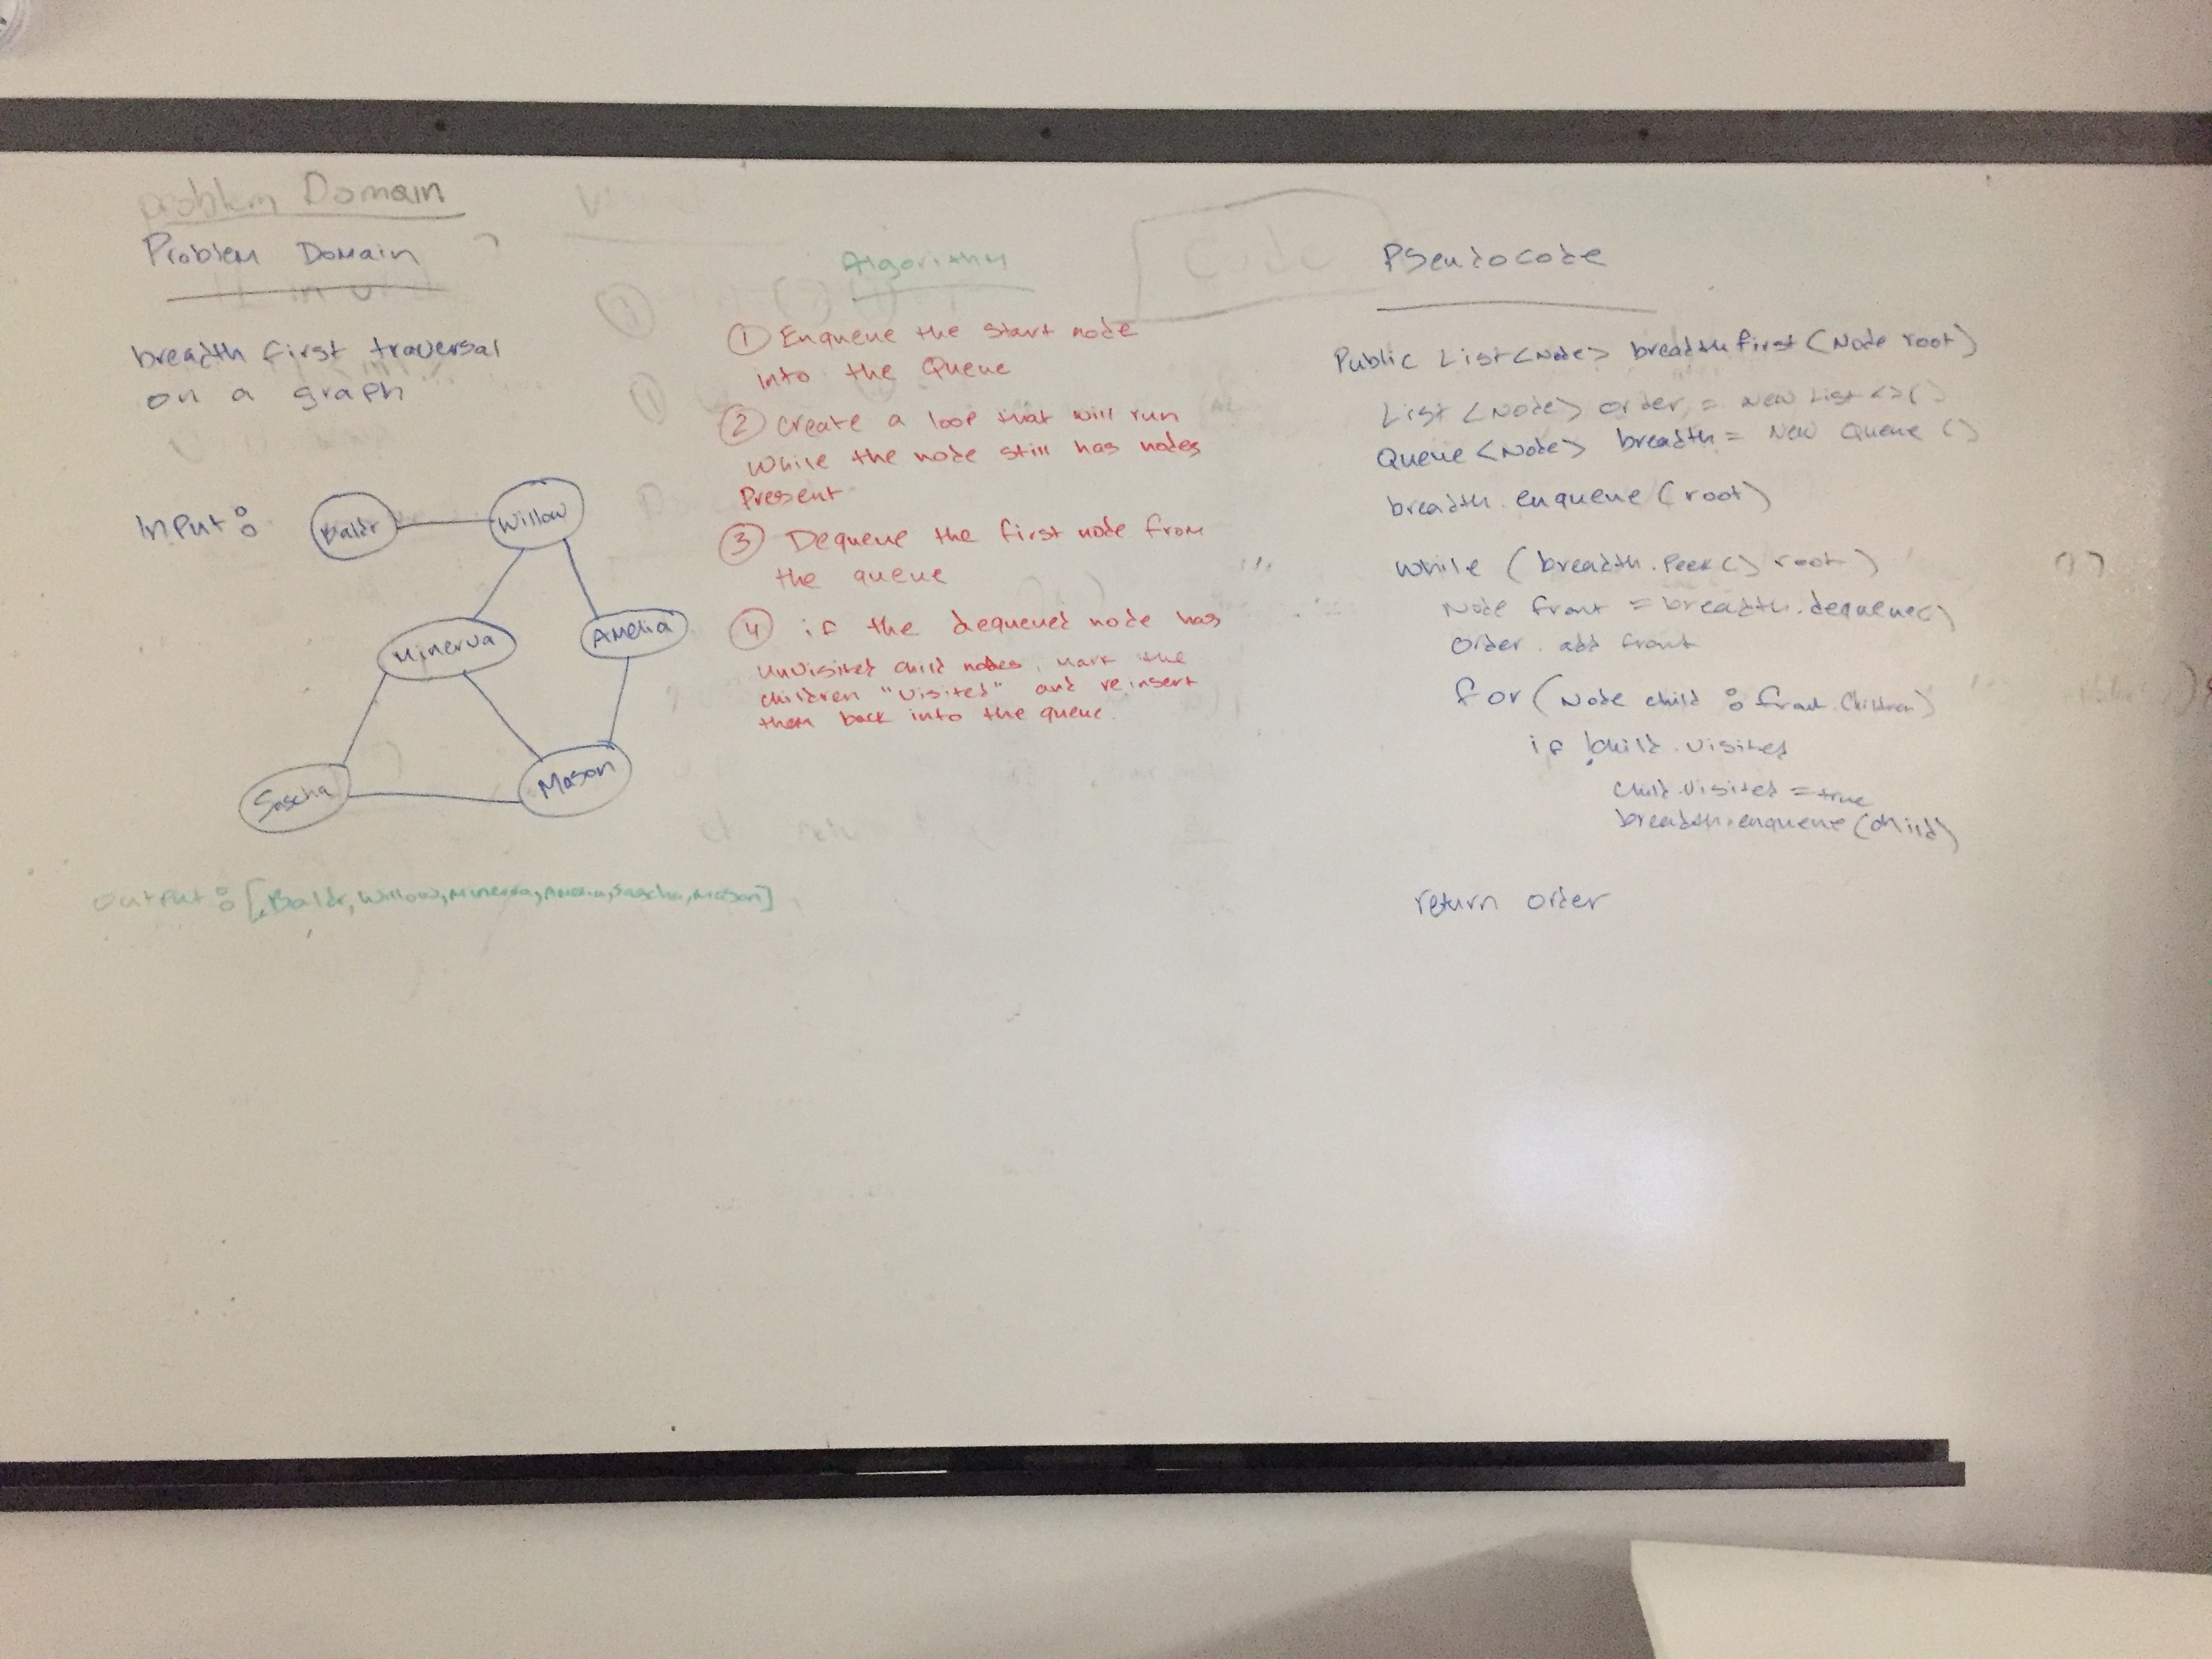 problem Domain
Problem Domain
breadth first traversal
on a graph
Input:
Baldr
Willow
Minerva
Amelia
Sascha
Mason
Output: [Baldr, Willow, Minerva, Amelia, Sascha, Mason]
Algorithm
① Enqueue the start node
into the Queue
② Create a loop that will run
While the node still has nodes
Present
③ Dequeue the first node from
the queue
④ if the dequeued node has
unvisited child nodes, mark the
children "visited" and reinsert
them back into the queue.
Code
Pseudocode
Public List<Node> breadthfirst(Node root)
List<Node> order = New List<>()
Queue<Node> breadth = New Queue()
breadth.enqueue(root)
While (breadth.Peek() root)
Node front = breadth.dequeue()
Order. add front
for(Node child : front.Children)
if !child.visited
child.visited = true
breadth.enqueue(child)
return order